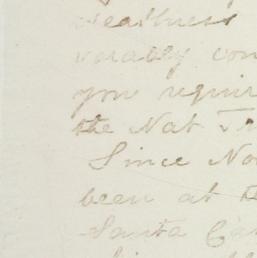 weakness
vorably con
you requir
the Nat Tr
Since No
been at t
Santa Ca